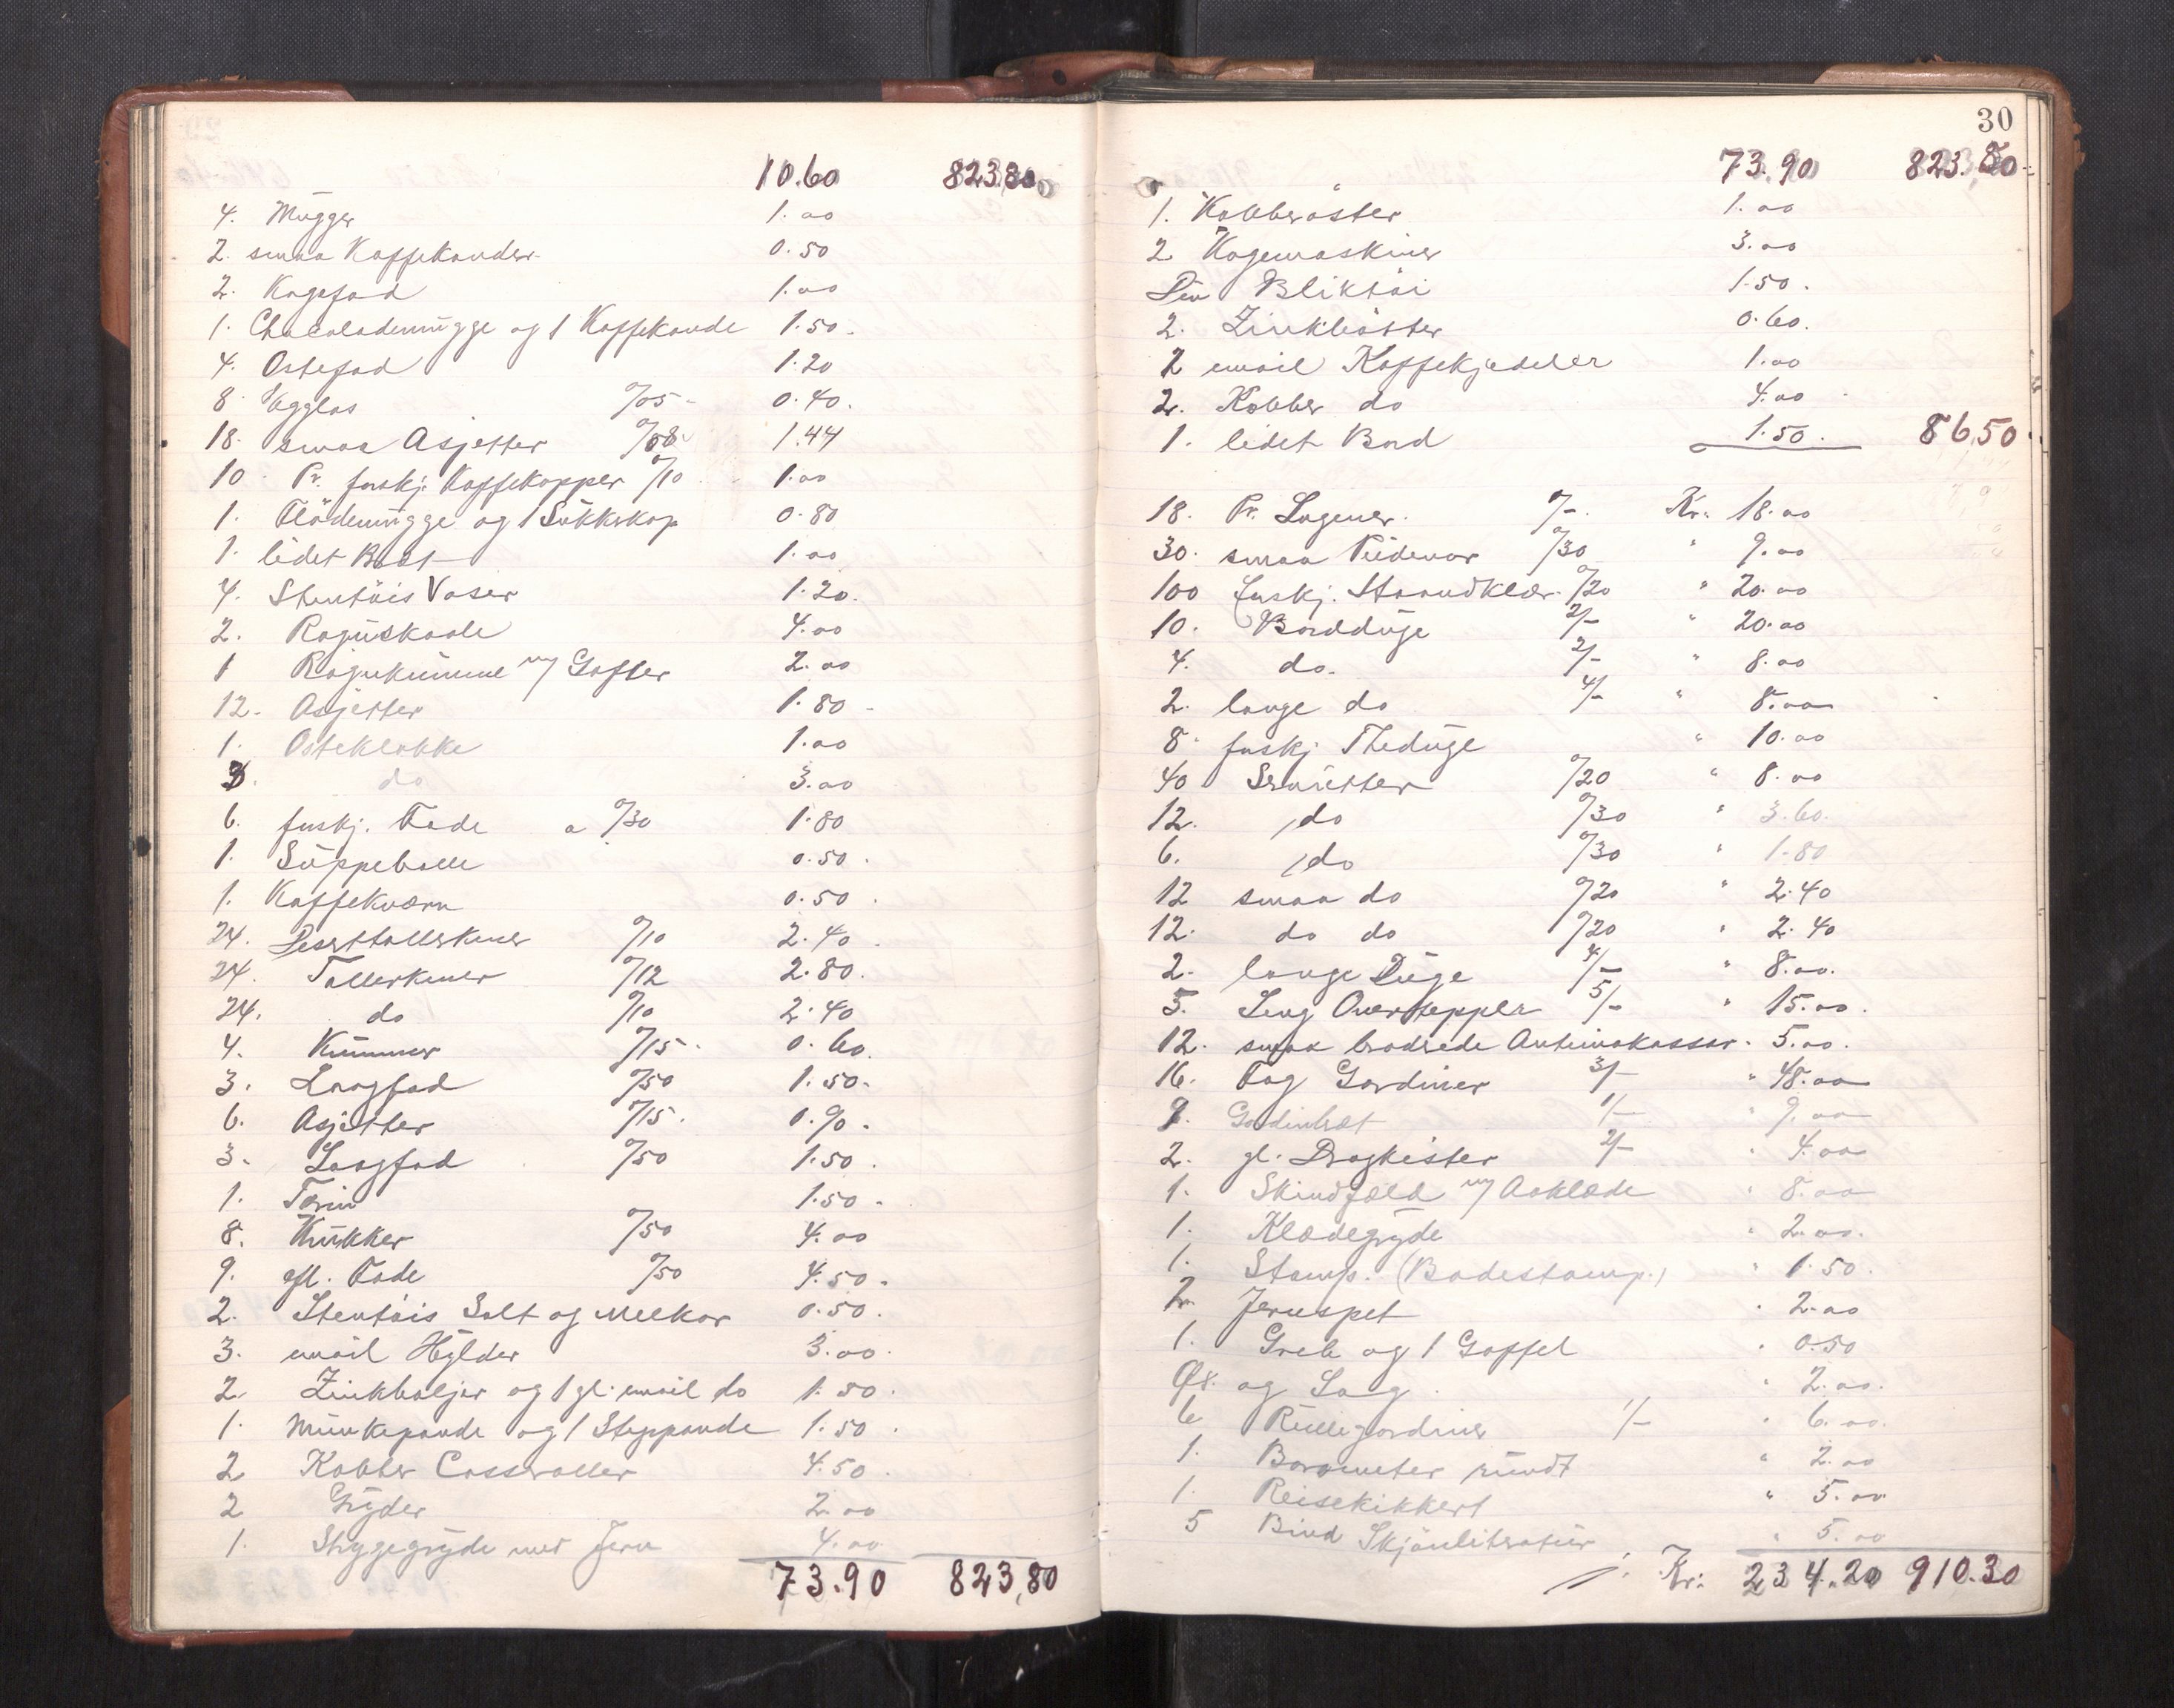 10.60 823.80
4. Mugger 1.00
2. smaa Kaffekander 0.50
2. Kagefad 1.00
1. Chocolademugge og 1 Kaffekande 1.50
4. Ostefad 1.20
8. Egglas 0/05 0.40
18. smaa Asjetter 0/08 1.44
10 Pr. forskj. Kaffekopper 0/10 1.00
1. Flödemugge og 1 Sukkskop 0.80
1. lidet Bret 1.00
4. Stentöis Vaser 1.20
2. Raguskaale 4.00
1 Ragukumme m/ Gafler 2.00
12. Asjetter 1.80
1. Osteklokke 1.00
3. do 3.00
6. forskj. Fade a 0/30 1.80
1. Suppebolle 0.50
1. Kaffekværn 0.50
24. Deserttallerkener 0/10 2.40
24. Tallerkener 0/12 2.80
24. do 0/10 2.40
4. Kummer 0/15 0.60
3. Langfad 0/50 1.50
6. Asjetter 0/15 0.90
3. Langfad 0/50 1.50
1. Terin 1.50
8. Krukker 0/50 4.00
9. gl. Fade 0/50 4.50
2. Stentöis Salt og Melkar 0.50
3. email Hylder 3.00
2. Zinkbaljer og 1 gl. email do 1.50
1. Munkepande og 1 Stegpande 1.50
2 Kobber Casseroller 4.50
2 Gryder 2.00
1. Strygegryde med Jern 4.00
73.90 823,80
30
73.90 823.80
1. Kobberöster 1.00
2 Kogemaskiner 3.00
Div Bliktöi 1.50
2. Zinkbötter 0.60
2 email Kaffekjedeler 1.00
2. Kobber do 4.00
1. lidet Bord 1.50 86,50
18. Pr. Lagener 1/- Kr. 18.00
30. smaa Pudevar 0/30 " 9.00
100 forskj. Haandklær 0/20 " 20.00
10. Bordduge 2/- " 20.00
4. do. 2/- " 8.00
2. lange do 4/- " 8.00
8. forskj. Theduge " 10.00
40 Servietter 0/20 " 8.00
12. do 0/30 " 3.60
6. do 0/30 " 1.80
12 smaa do 0/20 " 2.40
12. do do 0/20 " 2.40
2. lange Duge 4/- " 8.00
3. Seng Overtepper 5/- " 15.00
12. smaa broderede Antimakasser 5.00
16. Fag Gardiner 3/- " 48.00
9. Gardinbræt 1/- " 9.00
2. gl. Dragkister 2/- " 4.00
1. Skindfeld m/ Aaklæde " 8.00
1. Klædegryde " 2.00
1. Stamp. (Badestamp.) " 1.50
2. Jernspet " 2.00
1. Greb og 1 Gaffel " 0.50
Øx. og Sag " 2.00
6 Rullegardiner 1/- " 6.00
1. Barometer rundt " 2.00
1. Reisekikkert " 5.00
5 Bind Skjönliteratur " 5.00
Kr. 234.20 910.30